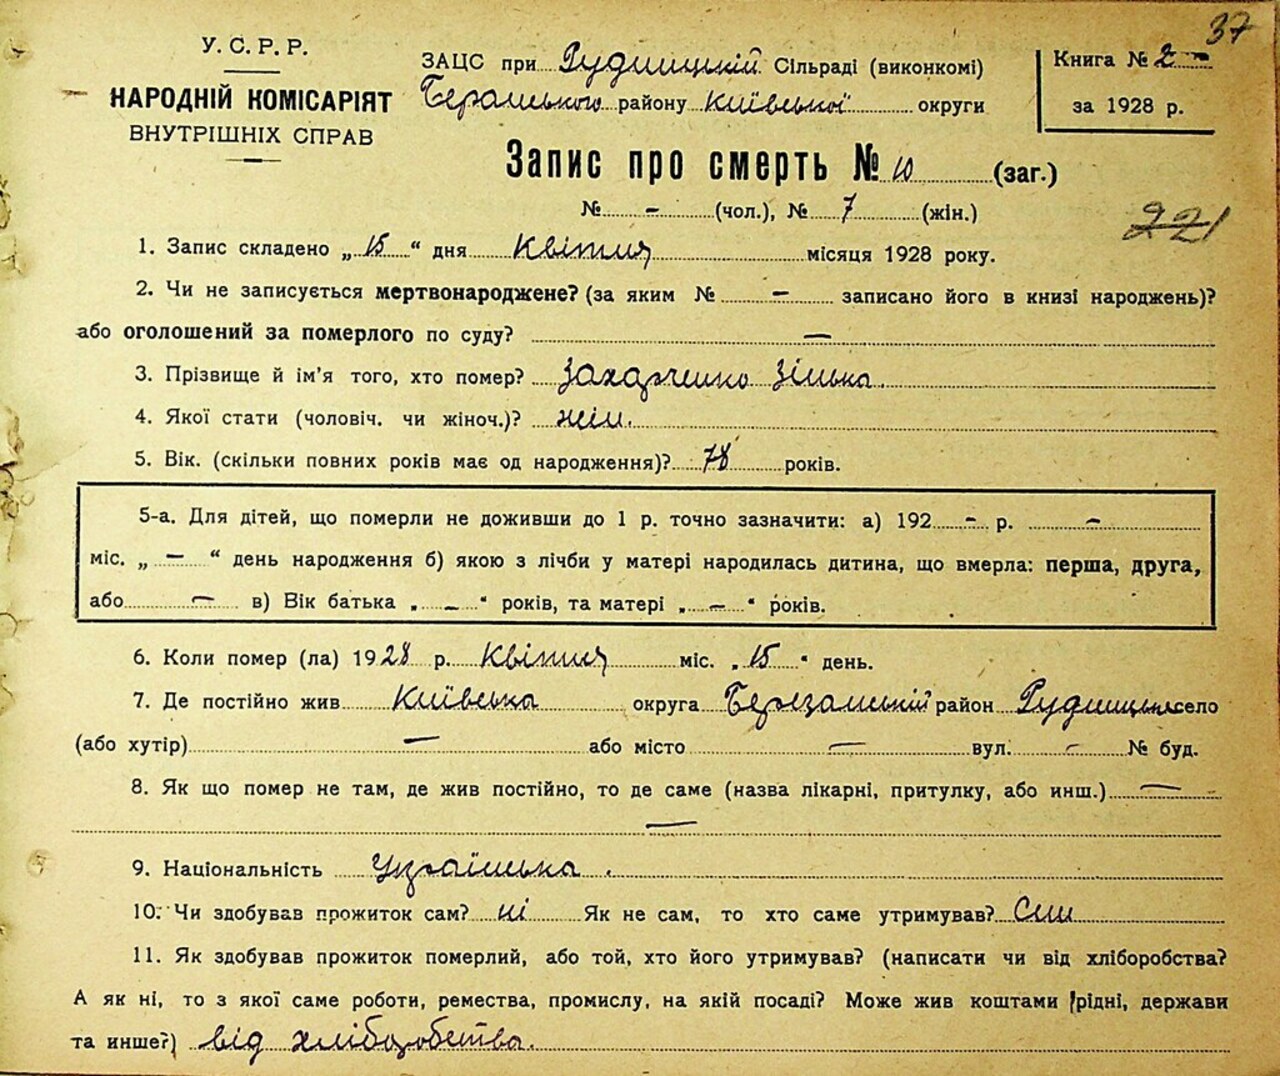 37
У.С.Р.Р.
НАРОДНІЙ КОМІСАРІЯТ
ВНУТРІШНІХ СПРАВ
ЗАЦС при Рудницкій Сільраді (виконкомі)
району Київської округи
Книга № 2
за 1928 р.
Запис про смерть № 10 (заг.)
№ - (чол.), № 7 (жін.)
221
1. Запис складено „15“ дня Квітня місяця 1928 року.
2. Чи не записується мертвонароджене? (за яким № — записано його в книзі народжень)?
або оголошений за померлого по суду? —
3. Прізвище й ім'я того, хто помер? Захарченко Зінька.
4. Якої стати (чоловіч. чи жіноч.)? жін.
5. Вік. (скільки повних років має од народження)? 78 років.
5-а. Для дітей, що померли не доживши до 1 р. точно зазначити: а) 192 - р. -
міс. „ — “ день народження б) якою з лічби у матері народилась дитина, що вмерла: перша, друга,
або — в) Вік батька „ — “ років, та матері „ — “ років.
6. Коли помер (ла) 1928 р. Квітня міс. „15“ день.
7. Де постійно жив Київська округа Березанський район село
(або хутір) — або місто — вул. - № буд.
8. Як що помер не там, де жив постійно, то де саме (назва лікарні, притулку, або инш.) —
—
9. Національність Українська.
10. Чи здобував прожиток сам? ні Як не сам, то хто саме утримував? Син
11. Як здобував прожиток померлий, або той, хто його утримував? (написати чи від хліборобства?
А як ні, то з якої саме роботи, ремества, промислу, на якій посаді? Може жив коштами (рідні, держави
та инше?) від хліборобства.